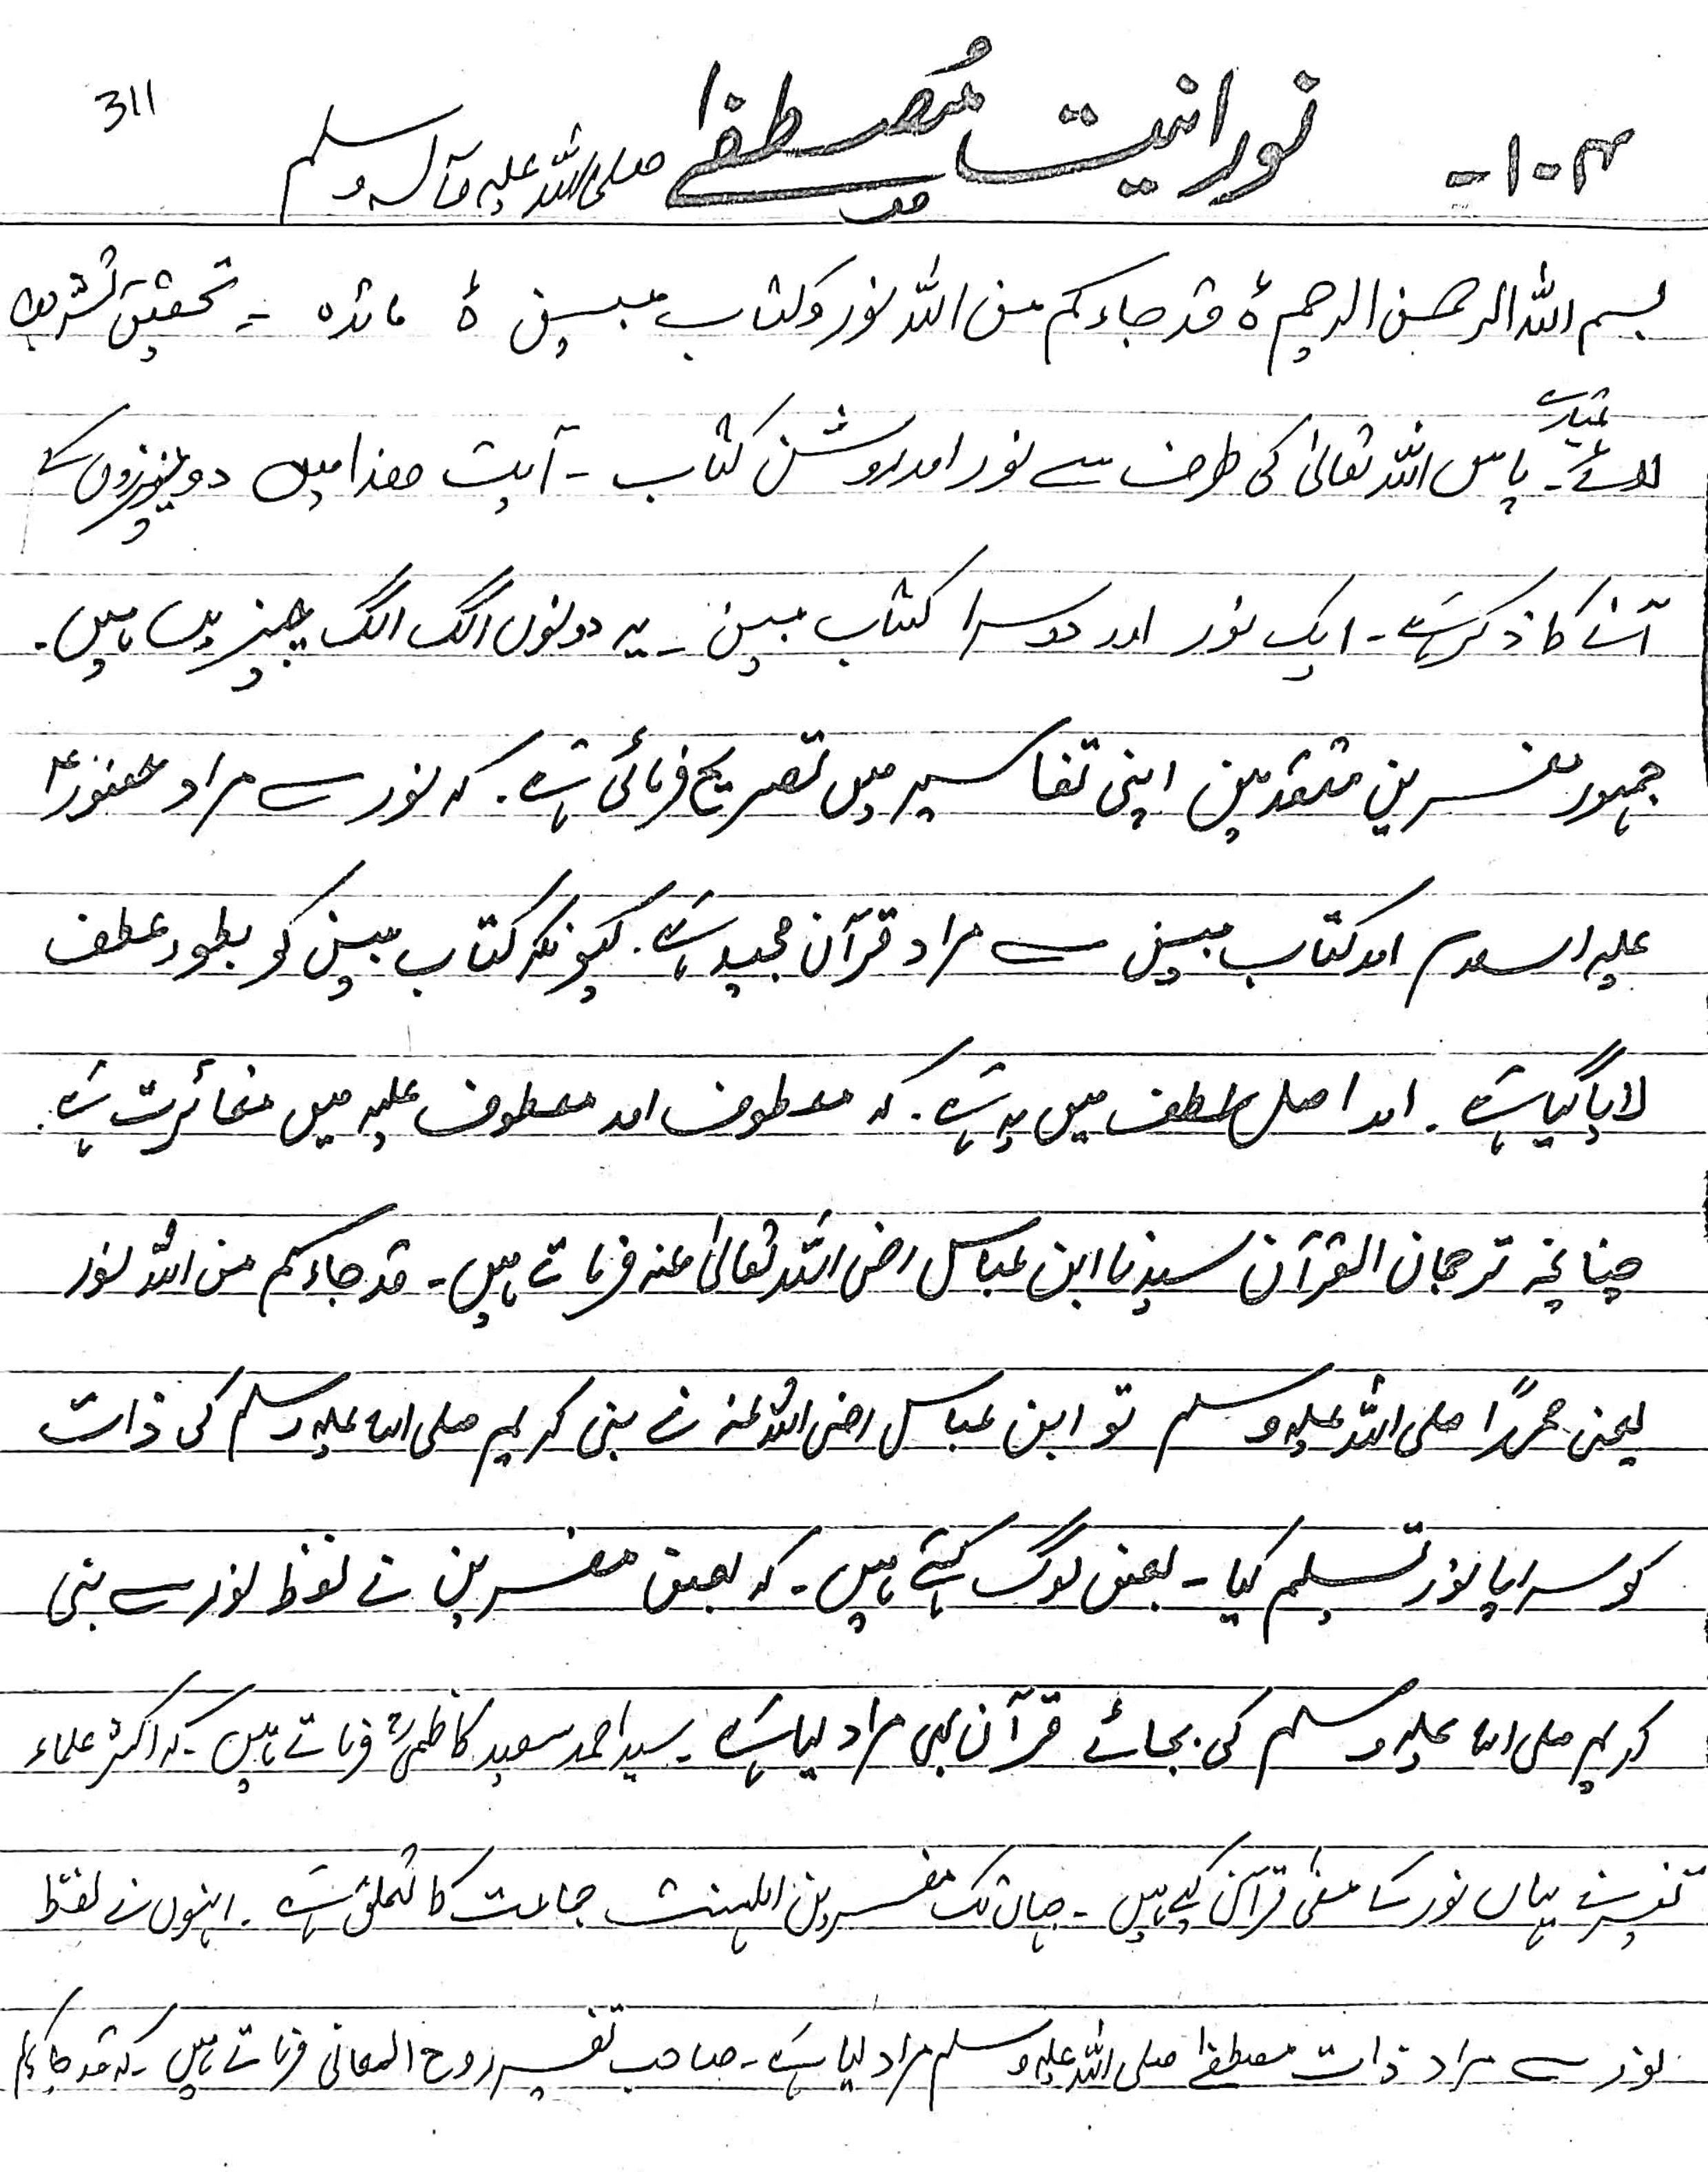 311
۴-۱- نورانیت مُصطفےٰ صلی اللہ علیہ وآلہ وسلم
بسم اللہ الرحمٰن الرحیم ہ قد جاءکم من اللہ نور وکتاب مبین ہ مائدہ - تحقیق تشریف
تمہارے
لائے - پاس اللہ تعالیٰ کی طرف سے نور اور روشن کتاب - آیت ھذا میں دو چیزوں کے
آنے کا ذکر ہے - ایک نور اور دوسرا کتاب مبین - یہ دونوں الگ الگ چیزیں ہیں -
جمہور مفسرین متقدمین اپنی تفاسیر میں تصریح فرمائی ہے - کہ نور سے مراد حضور
علیہ السلام اور کتاب مبین سے مراد قرآن مجید ہے - کیونکہ کتاب مبین کو بطور عطف
لایا گیا ہے - اور اصل عطف میں یہ ہے - کہ معطوف اور معطوف علیہ میں مغائرت ہے -
چنانچہ ترجمان القرآن سیدنا ابن عباس رضی اللہ تعالیٰ عنہ فرماتے ہیں - قد جاءکم من اللہ نور
یعنی محمداً صلی اللہ علیہ وسلم تو ابن عباس رضی اللہ عنہ نے نبی کریم صلی اللہ علیہ وسلم کی ذات
کو سراپا نور تسلیم کیا - بعض لوگ کہتے ہیں - کہ بعض مفسرین نے لفظ نور سے نبی
کریم صلی اللہ علیہ وسلم کی بجائے قرآن ہی مراد لیا ہے - سید احمد سعید کاظمیؒ فرماتے ہیں - کہ اکثر علماء
تفسیر نے یہاں نور کا معنی قرآن کیے ہیں - جہاں تک مفسرین اہلسنت جماعت کا تعلق ہے - انہوں نے لفظ
نور سے مراد ذات مصطفےٰ صلی اللہ علیہ وسلم مراد لیا ہے - صاحب تفسیر روح المعانی فرماتے ہیں - کہ قد جاءکم